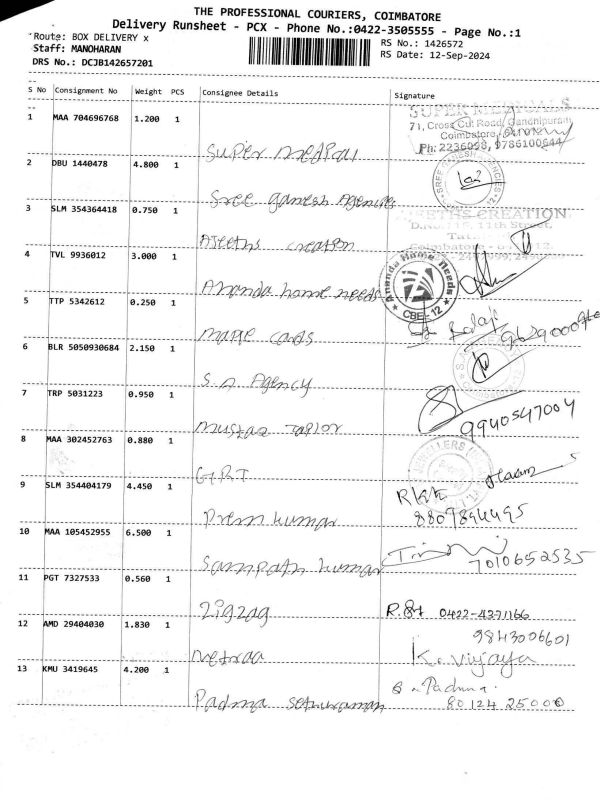 THE PROFESSIONAL COURIERS, COIMBATORE
Delivery Runsheet - PCX - Phone No.:0422-3505555 - Page No.:1
Route: BOX DELIVERY x
RS No.: 1426572
Staff: MANOHARAN
RS Date: 12-Sep-2024
DRS No.: DCJB142657201
S No Consignment No Weight PCS Consignee Details Signature
1 MAA 704696768 1.200 1 Super Medical
SUPER MEDICALS
71, Cross Cut Road, Gandhipuram
Coimbatore,
Ph: 2236098, 9786100644
2 DBU 1440478 4.800 1 Sree Ganesh Agencies
SREE GANESH AGENCIES
3 SLM 354364418 0.750 1 Ajeeths creation
AJEETHS CREATION
11th Street,
Coimbatore
4 TVL 9936012 3.000 1 Ananda home needs
Ananda Home Needs
CBE-12
5 TTP 5342612 0.250 1 Maple cards
Balaji
6 BLR 5050930684 2.150 1 S.A. Agency
7 TRP 5031223 0.950 1 Mustaz Taplor
9940547004
8 MAA 302452763 0.880 1 GRT
9 SLM 354404179 4.450 1 Prem kumar
8809844495
10 MAA 105452955 6.500 1 Sampath kumar
7010652535
11 PGT 7327533 0.560 1 Zigzag
0422-4371166
12 AMD 29404030 1.830 1 Netraa
9843006601
K. Vijaya
13 KMU 3419645 4.200 1 Padma sethuraman
Padma
80124 25000